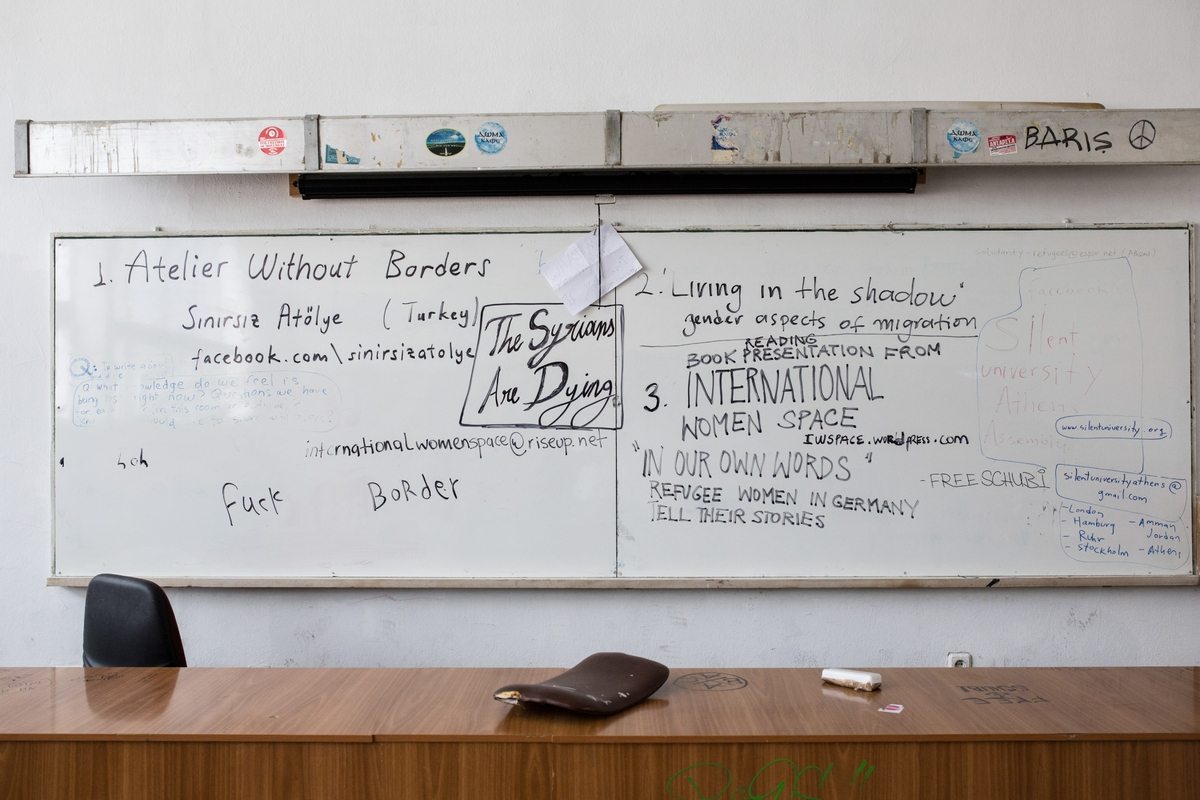 BARIŞ
1. Atelier Without Borders
Sınırsız Atölye (Turkey)
facebook.com\sinirsizatolye
The Syrians
Are Dying
internationalwomenspace@riseup.net
heh
Fuck Border
2. "Living in the shadow"
gender aspects of migration
READING
BOOK PRESENTATION FROM
3. INTERNATIONAL
WOMEN SPACE
IWSPACE.WORDPRESS.COM
"IN OUR OWN WORDS"
REFUGEE WOMEN IN GERMANY
TELL THEIR STORIES
- FREE SCHUBI
facebook
Silent
university
Athens
Assembly
www.silentuniversity.org
silentuniversityathens@
gmail.com
- London
- Hamburg
- Ruhr
- Stockholm
- Amman
Jordan
- Athens
Q:
what knowledge do we feel is
right now? Questions we have
in this room
FREE
SCHUBI